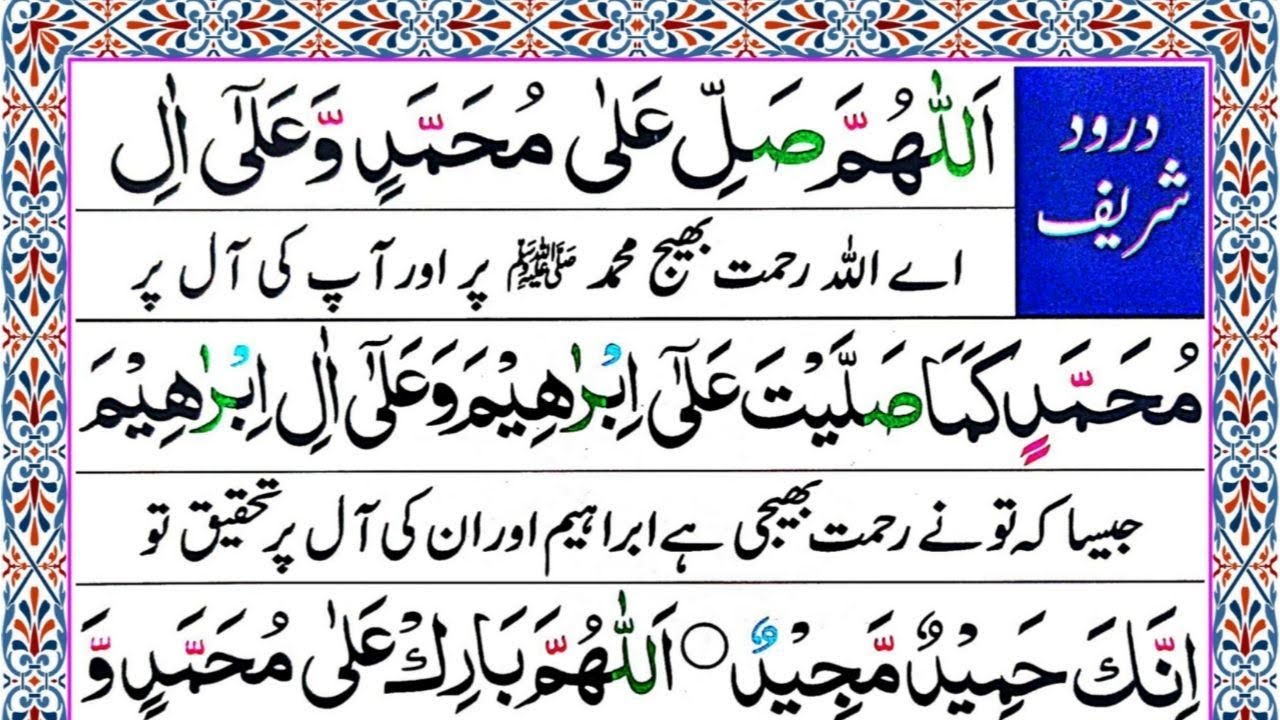 درود
شریف
اَللّٰهُمَّ صَلِّ عَلٰی مُحَمَّدٍ وَّعَلٰۤی اٰلِ
اے اللہ رحمت بھیج محمد ﷺ پر اور آپ کی آل پر
مُحَمَّدٍ كَمَا صَلَّیْتَ عَلٰۤی اِبْرٰهِیْمَ وَعَلٰۤی اٰلِ اِبْرٰهِیْمَ
جیسا کہ تو نے رحمت بھیجی ہے ابراہیم اور ان کی آل پر تحقیق تو
اِنَّكَ حَمِیْدٌ مَّجِیْدٌ ○ اَللّٰهُمَّ بَارِكْ عَلٰی مُحَمَّدٍ وَّ